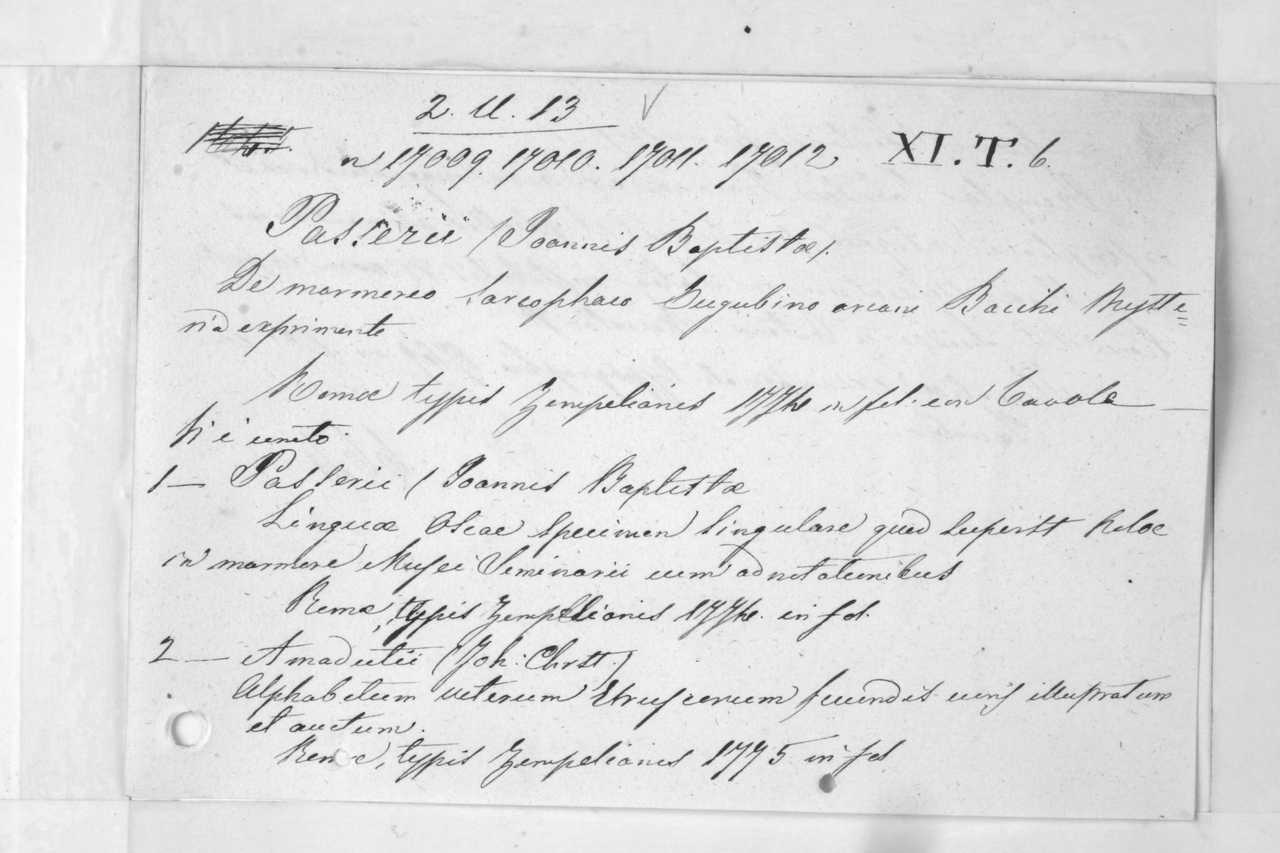 2. U. 13
n 17009. 17010. 17011. 17012 XI. T. 6.
Passerii (Joannis Baptistæ).
De marmoreo Sarcophaco Eugubino arcani Bacchi Myste=
ria exprimente
Romæ typis Zempelianis 1774 in fol. con Tavole —
Vi è unito.
1 — Passerii (Joannis Baptistæ
Linguæ Oscae specimen singulare quod superest Nolæ
in marmore Musei Seminarii cum adnotationibus
Romæ, typis Zempellianis 1774. in fol.
2 — Amadutii (Joh: Christ.)
Alphabetum veterum Etruscorum secundis curis illustratum
et auctum.
Romæ, typis Zempelianis 1775 in fol